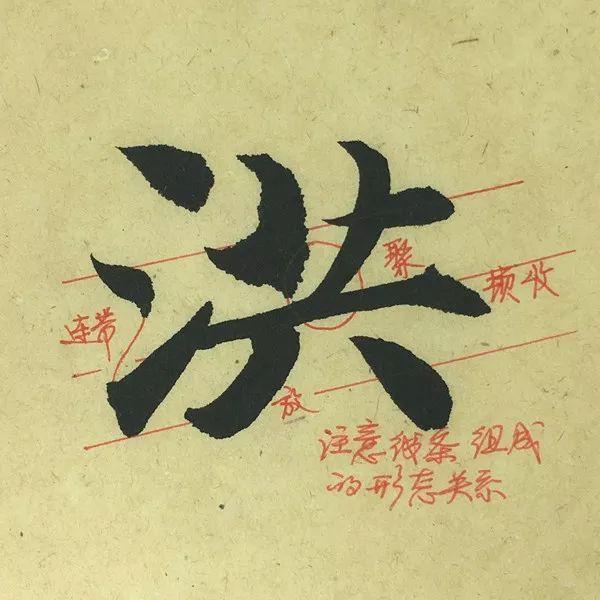 洪
聚
顿收
连带
放
注意线条组成
的形态关系